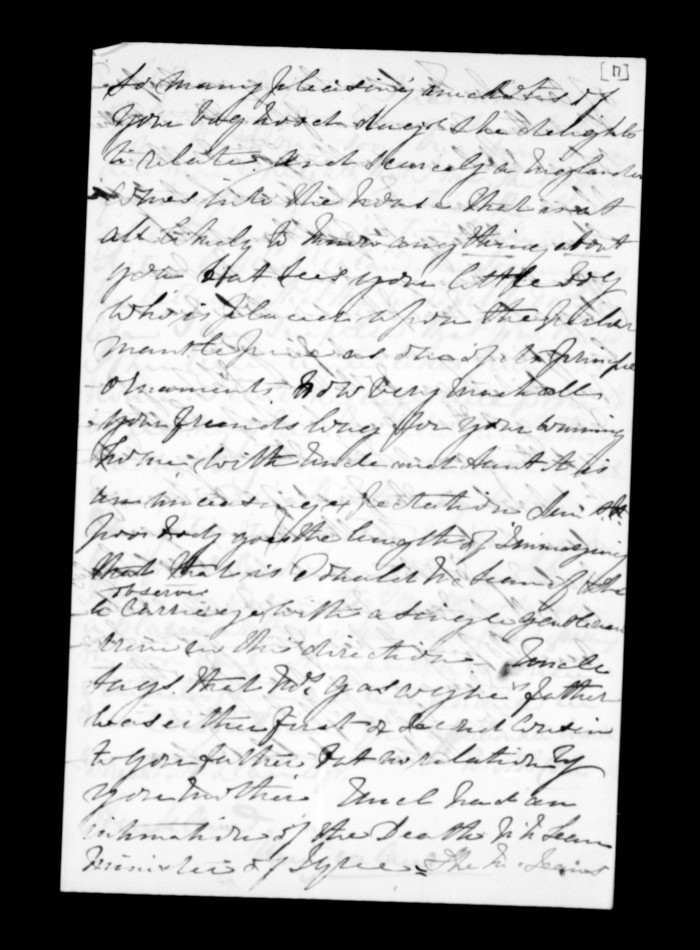 [7]
so many pleasing anecdotes of
your boyhood days she delights
to relate. And scarcely a Highlander
comes into the house that is at
all likely to know anything about
you but sees your little Boy
who is placed upon the parlor
mantle piece as one of its principle
ornaments. How very much all
your friends long for your coming
home with Uncle and Aunt it is
an unceasing expectation Aunt
poor body goes the length of immagining
that that is Donald McLean if she
observes
a carriage with a single gentleman
in this direction. Uncle
says that Mrs father
was either first or second Cousin
to your father but no relation of
your mother. Uncle had an
intimation of the Death McLean
minister of Tyree. The McLeans